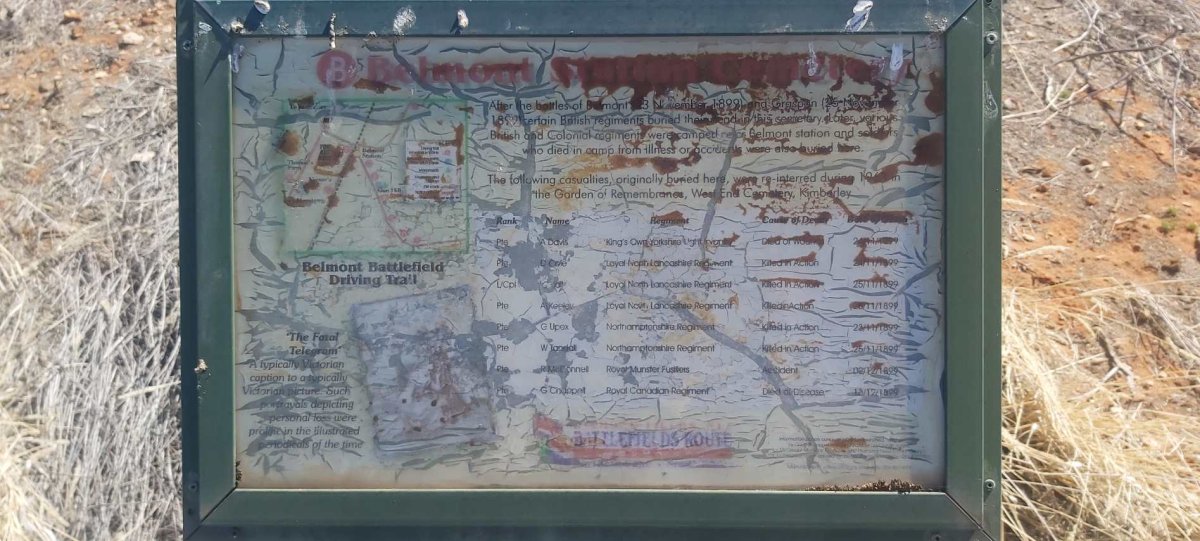 B Belmont Station Cemetery
After the battles of Belmont (23 November 1899) and Graspan (25 November
1899) certain British regiments buried their dead in this cemetery. Later, various
British and Colonial regiments were camped near Belmont station and soldiers
who died in camp from illness or accidents were also buried here.
The following casualties, originally buried here, were re-interred during in
the Garden of Remembrance, West End Cemetery, Kimberley
Rank Name Regiment Cause of Death
Pte A Davis King's Own Yorkshire Light Infantry Died of Wounds /11/1899
Pte Loyal North Lancashire Regiment Killed in Action /11/1899
L/Cpl Loyal North Lancashire Regiment Killed in Action 25/11/1899
Pte Loyal North Lancashire Regiment Killed in Action /11/1899
Pte G Upex Northamptonshire Regiment Killed in Action 23/11/1899
Pte W Northamptonshire Regiment Killed in Action 25/11/1899
Pte R McConnell Royal Munster Fusiliers Accident /12/1899
Pte G Chappell Royal Canadian Regiment Died of Disease 12/12/1899
Belmont
Station
Belmont Battlefield
Driving Trail
'The Fatal
Telegram'
A typically Victorian
caption to a typical
Victorian picture. Such
portrayals depicting
personal loss were
prolific in the illustrated
periodicals of the time
BATTLEFIELDS ROUTE